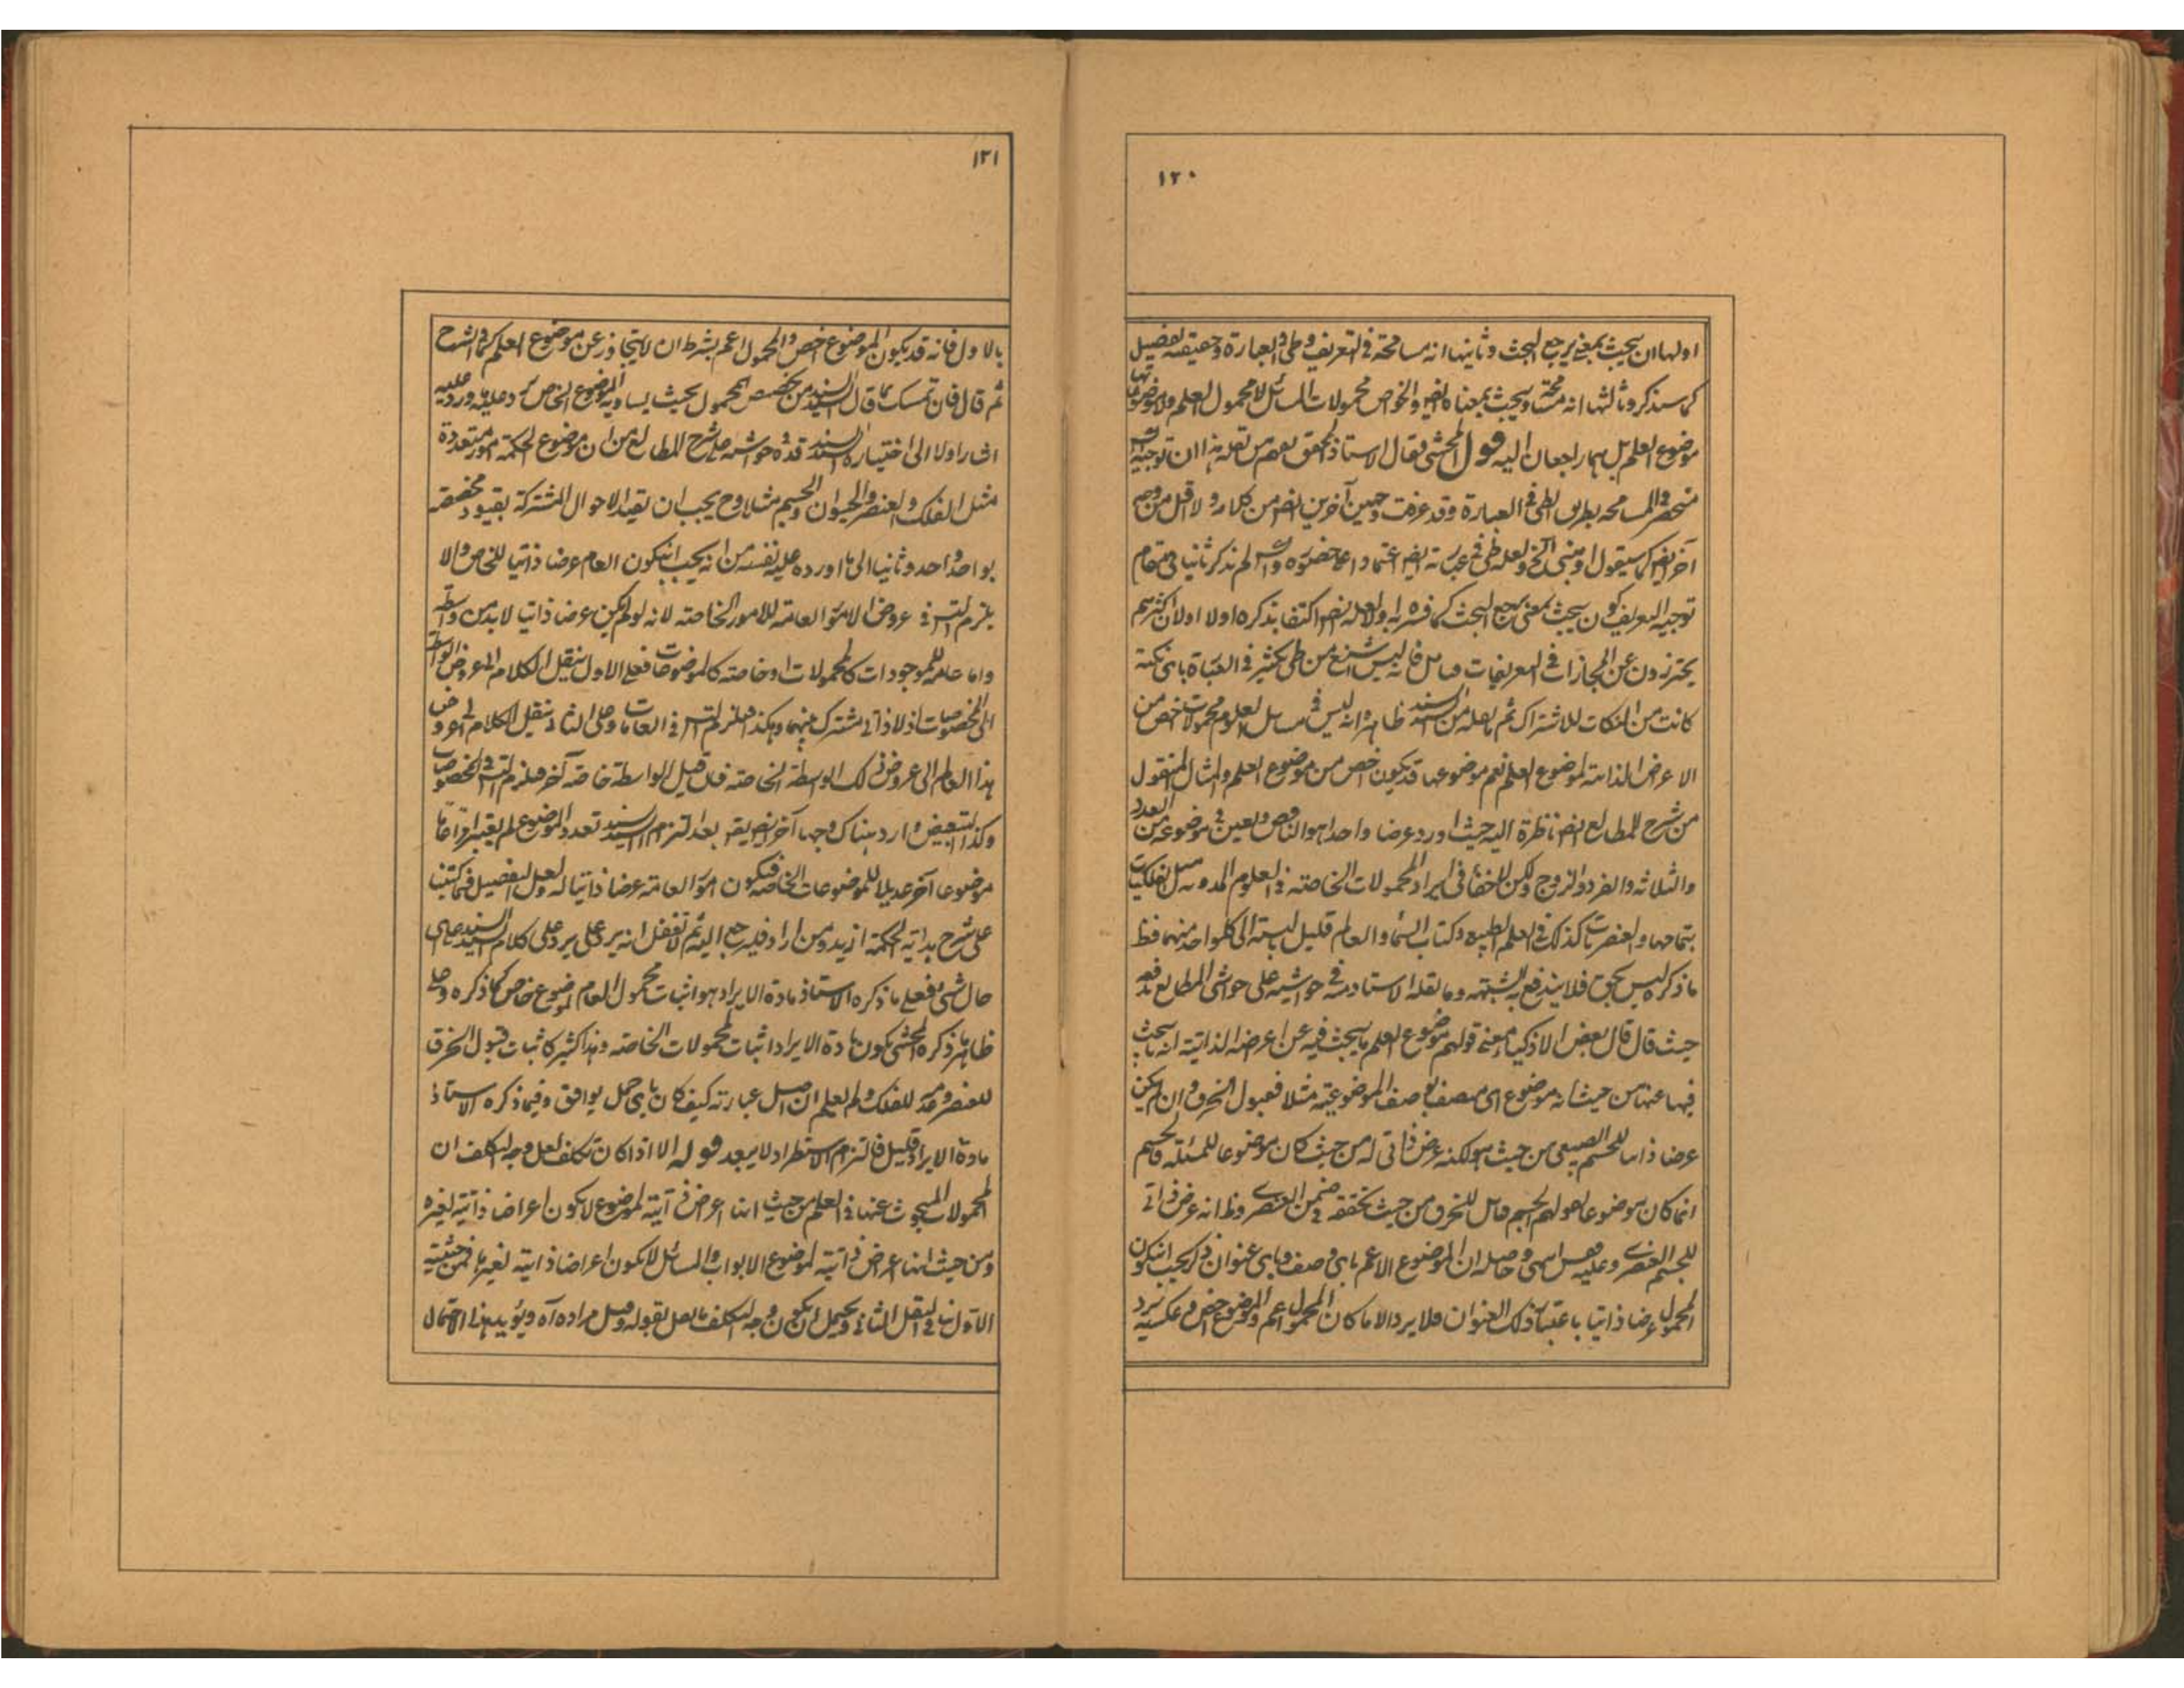 ١٢٠
اولها ان يبحث بمعنى يرجع البحث وثانيها انه مسامحة في التعريف وطي في العبارة وحقيقته تفصيل
كما سنذكر وثالثها انه مسامحة ويبحث بمعناه ايضا والخواص محمولات المسائل لا محمول العلم ولا موضوعاتها
موضوع العلم بل هما راجعان اليه قول المحشي فقال الاستاذ المحقق بعد من نقله هذا ان توجيه
منحصر في المسامحة بطريق الطي في العبارة وقد عرفت وجهين آخرين ايضا من كلامه ولا اقل من وجه
آخر ايضا كما سيقول او مبنى الخ ولعله طي في عبارته ايضا اعتمادا على حضوره لم نذكر ثانيا في مقام
توجيه التعريف كون يبحث بمعنى يرجع البحث كما فسر به اولا ولعله ايضا اكتفا بذكره اولا اولان اكثرهم
يحترزون عن المجازات في التعريفات فانه ليس اشنع من طي كثير في العبارة باي نكتة
كانت من النكات للاشتراك ثم نقله من السيد ظاهر وانه ليس في مسائل العلوم محمولات اخص من
الاعراض الذاتية لموضوع العلم نعم موضوعها قد يكون اخص من موضوع العلم والمثال المنقول
من شرح المطالع ايضا ناظرة اليه حيث اورد عرضا واحدا هو الناقص وتعين في موضوعه من العدد
والثلاثة والفرد والزوج ولكن لا خفا في ايراد المحمولات الخاصة في العلوم المدونة مثل الفلكيات
بتمامها والعنصريات كذلك في العلم الطبيعي وكتاب السماء والعالم قليل البتة الى كل واحد منهما فظ
ما ذكره ليس بحق فلا يندفع به الشبهة وما نقله الاستاد في حواشيه على حواشي المطالع
حيث قال قال بعض الاذكيا معنى قولهم موضوع العلم ما يبحث فيه عن اعراضه الذاتية انه يبحث
فيها عنها من حيث انه موضوع اي متصف بوصف الموضوعية مثلا فقبول الخرق وان لم يكن
عرضا ذاتيا للجسم الطبيعي من حيث هو لكنه عرض ذاتي له من حيث كان موضوعا للمسئلة فالجسم
انما كان موضوعا لقولهم الجسم قابل للخرق من حيث تحققه في ضمن العنصري وظ انه عرض ذاتي
للجسم العنصري وعليه انتهى وحاصله ان الموضوع الاعم باي وصف وباي عنوان ذكر يجب ان يكون
المحمول عرضا ذاتيا باعتبار ذلك العنوان فلا يرد الا ما كان المحمول اعم والموضوع اخص وعكسه يرد
١٢١
بالاول فانه قد يكون الموضوع اخص والمحمول اعم بشرط ان لا يتجاوز عن موضوع العلم كما في الشرح
ثم قال فان تمسك بما قال السيد من تخصيص المحمول بحيث يساويه الموضوع الخاص يرد عليه ما ورد عليه
اشار اولا الى اختيار السيد قده في حواشيه على شرح المطالع من ان موضوع الحكمة امور متعددة
مثل الفلك والعنصر والحيوان والجسم مثلا وح يجب ان تقيد الاحوال المشتركة بقيود مخصصة
بواحد واحد وثانيا الى ما اورده عليه نفسه من انه يجب ان يكون العام عرضا ذاتيا للخاص والا
يلزم التس في عروض الامور العامة للامور الخاصة لانه لو لم يكن عرضا ذاتيا لا بد من واسطة
واما عامة للموجودات كالمحمولات او خاصة كالموضوعات فعلى الاول ينقل الكلام الى عروض الواسطة
الى الخصوصيات اذ لا ذاتي مشترك بينهما وهكذا فيلزم التس في العامات وعلى الثاني ننقل الكلام الى عروض
هذا العام الى عروض ذلك الواسطة الخاصة فان قيل الواسطة خاصة آخر فيلزم التس في الخصوصيات
وكذا التبعيض وارد هناك وجها آخر ايضا بعد التزام السيد تعدد الموضوع لم يعتبر امرا عاما
موضوعا آخر عديلا للموضوعات الخاصة فيكون الامور العامة عرضا ذاتيا له ولعل التفصيل فيما كتبنا
على شرح هداية الحكمة ازيد ومن اراد فليرجع اليه ثم لا تغفل انه يرد على كلام السيد على اي
حال شيء فعلى ما ذكره الاستاذ مادة الايراد هو اثبات محمول العام لموضوع خاص كما ذكره وعلى
ظاهر ما ذكره المحشي يكون مادة الايراد اثبات المحمولات الخاصة وهذا كثير كاثبات قبول الخرق
للعنصر وعدمه للفلك ولم يعلم ان اصل عبارته كيف كان باي حمل يوافق وفيما ذكره الاستاذ
مادة الايراد قليل فالتزام الاستطراد لا يبعد قوله الا اذا كان تكلف لعل وجه التكلف ان
المحمولات المبحوث عنها في العلم من حيث انها اعراض ذاتية لموضوع لا يكون اعراضا ذاتية لغيره
ومن حيث انها عراض ذاتية لموضوع الابواب والمسائل لا يكون اعراضا ذاتية لغيرها فمن حيثية
الاول ينافي لنقل الثاني ويحتمل ان يكون وجه التكلف ما نقل بقوله وقيل مراده آه ويؤيد هذا الاحتمال